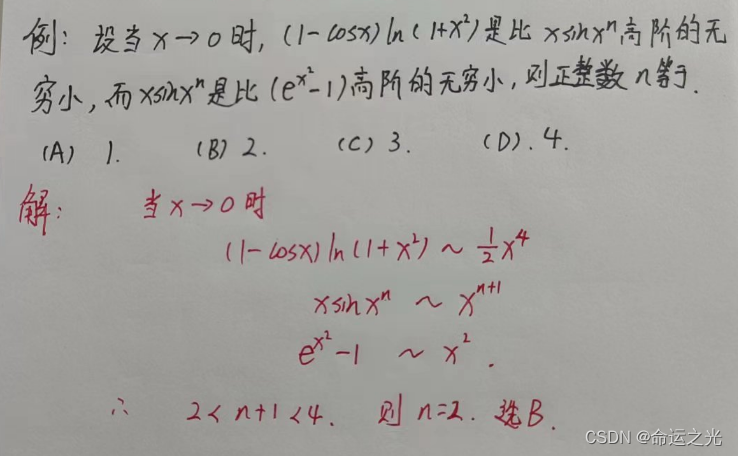 例: 设当 x→0 时, (1-cosx) ln(1+x²) 是比 xsinxⁿ 高阶的无
穷小, 而 xsinxⁿ 是比 (e^{x²}-1) 高阶的无穷小, 则正整数 n 等于.
(A) 1. (B) 2. (C) 3. (D). 4.
解: 当 x→0 时
(1-cosx) ln(1+x²) ~ ½x⁴
xsinxⁿ ~ xⁿ⁺¹
e^{x²}-1 ~ x².
∴ 2<n+1<4. 则 n=2. 选B.
CSDN @命运之光